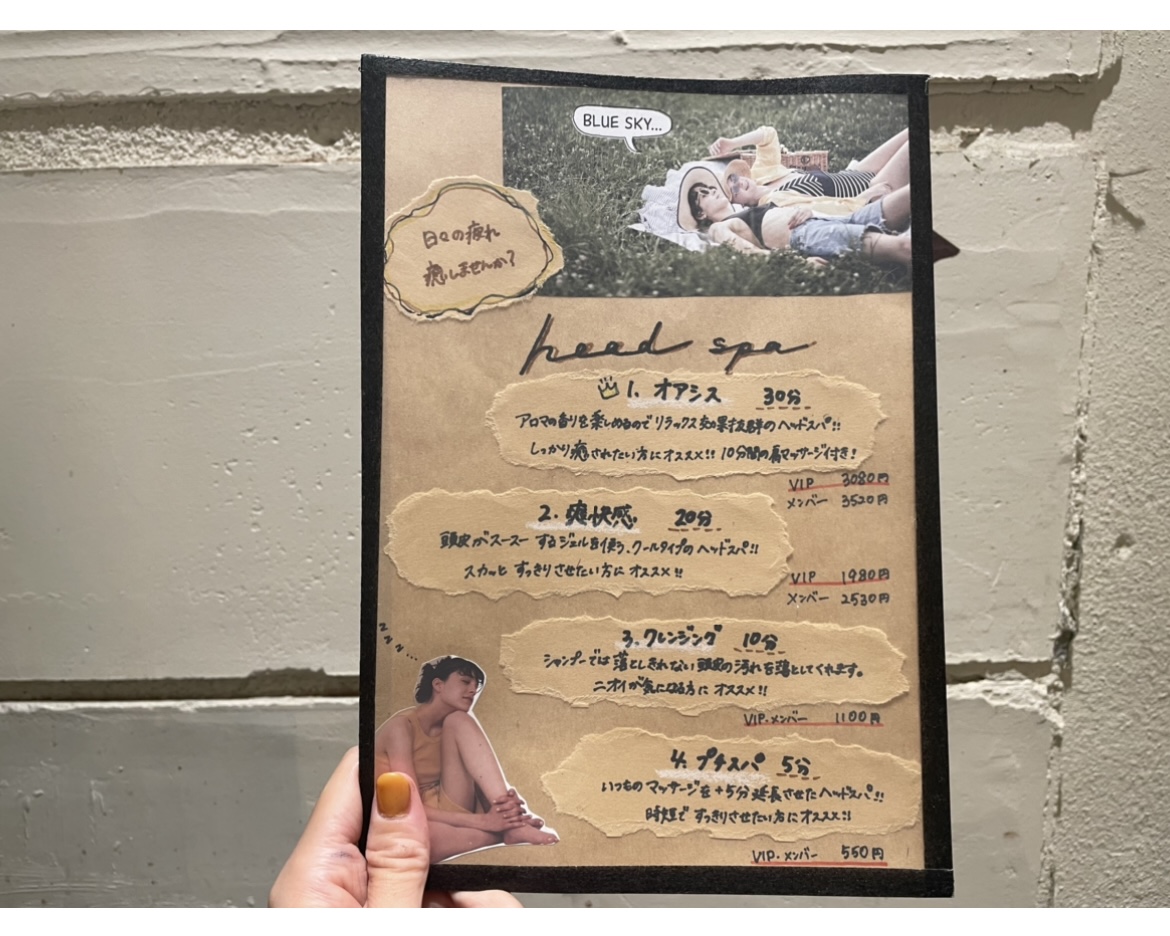 BLUE SKY...
日々の疲れ
癒しませんか?
head spa
1. オアシス 30分
アロマの香りを楽しめるのでリラックス効果抜群のヘッドスパ!!
しっかり癒されたい方にオススメ!! 10分間の肩マッサージ付き!
VIP 3080円
メンバー 3520円
2. 爽快感 20分
頭皮がスースーするジェルを使う、クールタイプのヘッドスパ!!
スカッとすっきりさせたい方にオススメ!!
VIP 1980円
メンバー 2530円
3. クレンジング 10分
シャンプーでは落としきれない頭皮の汚れを落としてくれます。
ニオイが気になる方にオススメ!!
VIP・メンバー 1100円
zzz...
4. プチスパ 5分
いつものマッサージを+5分延長させたヘッドスパ!!
時短ですっきりさせたい方にオススメ!!
VIP・メンバー 550円